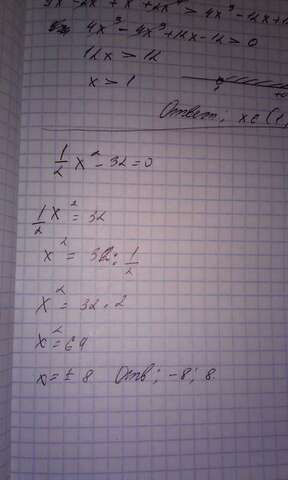 4x³ - 4x³ + 12x - 12 > 0
12x > 12
x > 1
Ответ: x ∈ (1;
1/2 x² - 32 = 0
1/2 x² = 32
x² = 32 : 1/2
x² = 32 · 2
x² = 64
x = ± 8 Отв; -8; 8.